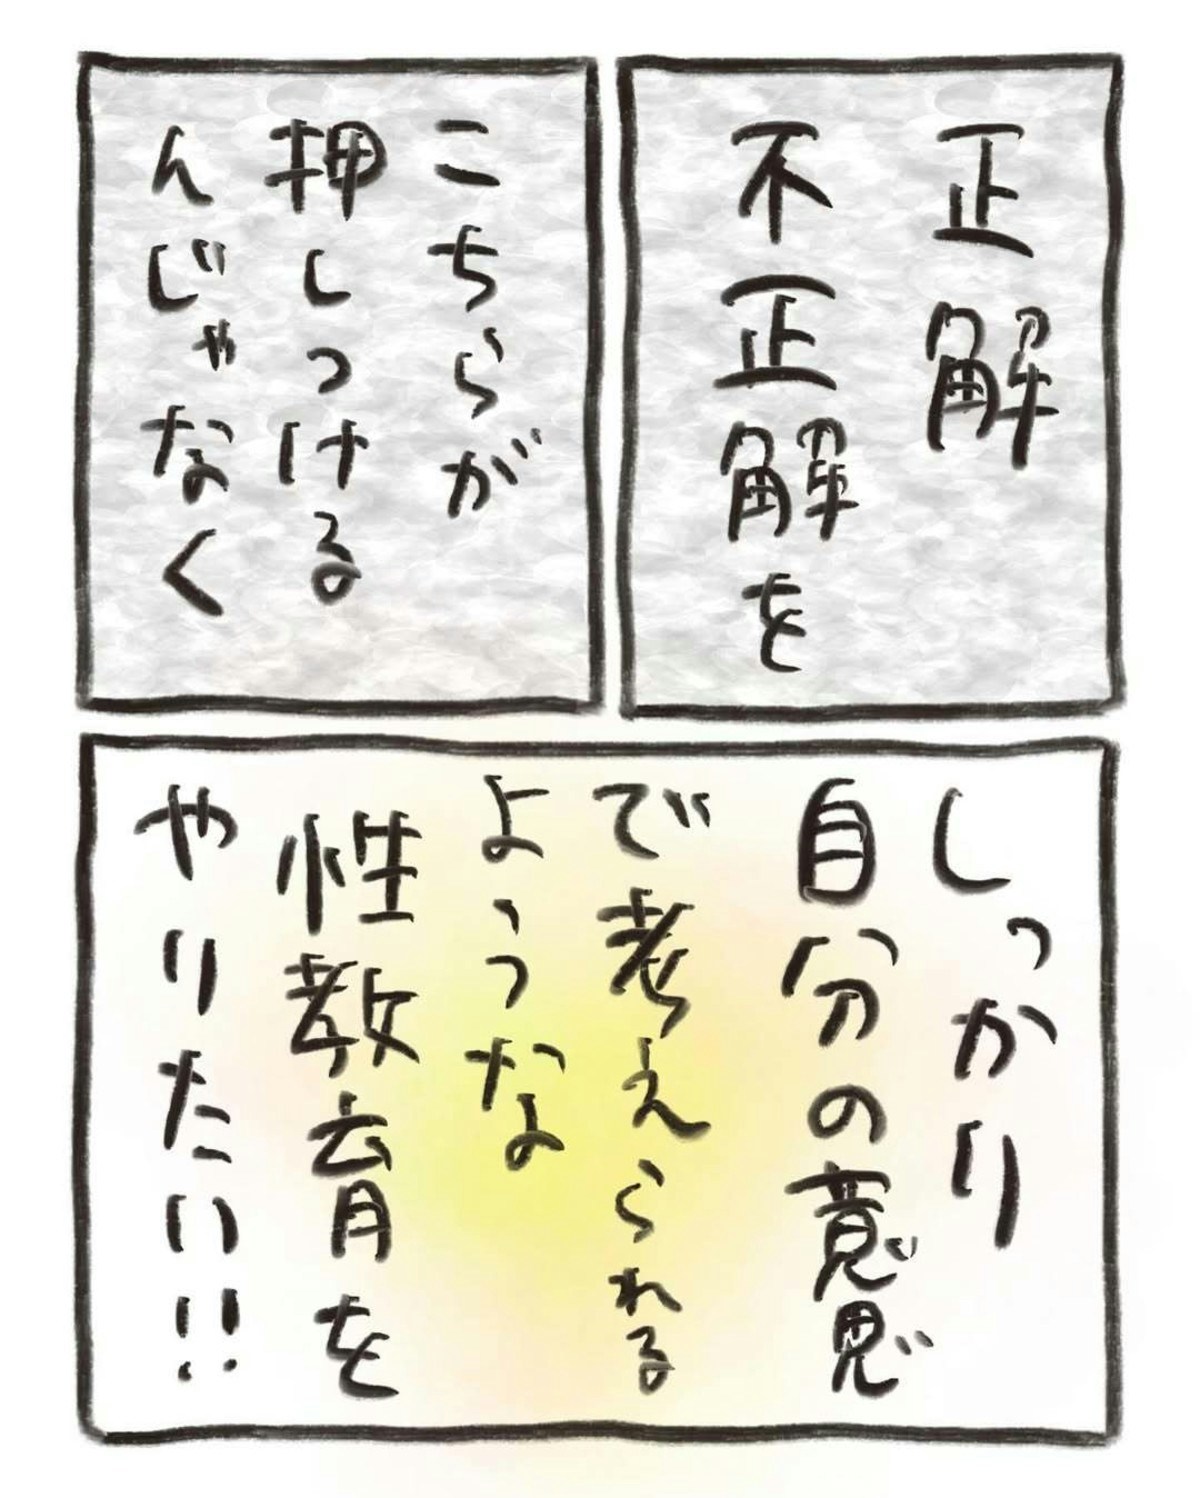 正解
不正解を
こちらが
押しつける
んじゃなく
しっかり
自分の意思
で考えられる
ような
性教育を
やりたい!!